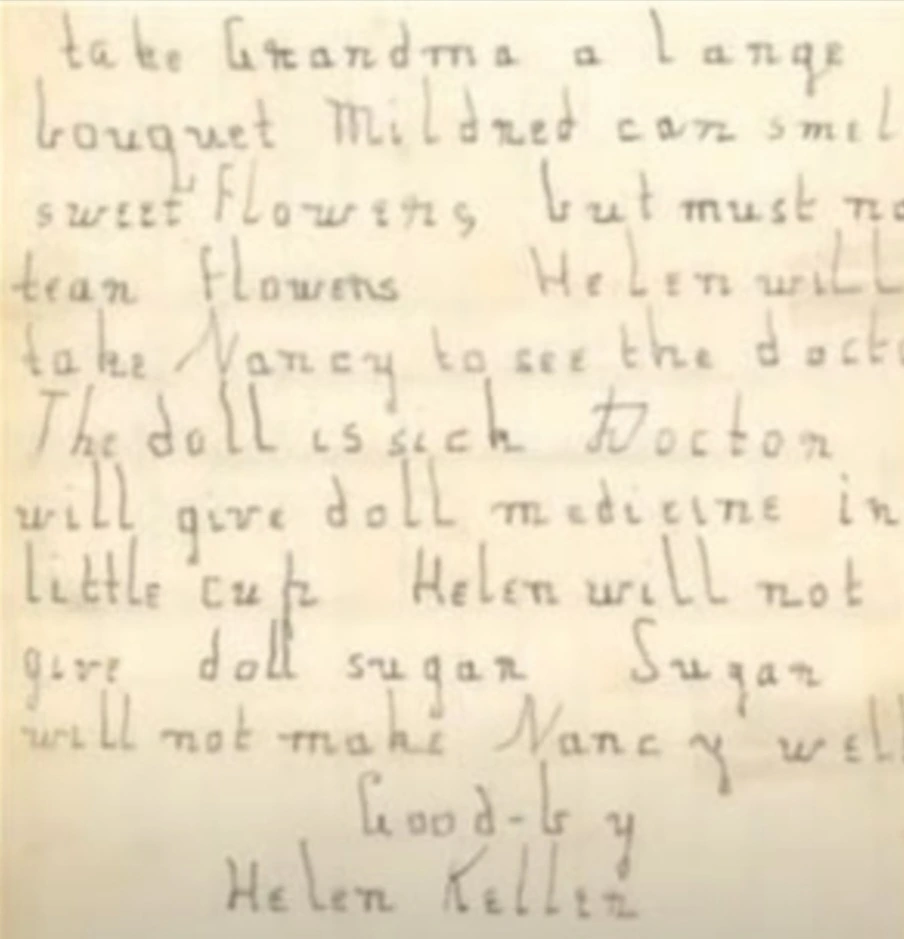 take Grandma a large
bouquet Mildred can smel
sweet flowers, but must no
tear flowers Helen will
take Nancy to see the docto
The doll is sick Doctor
will give doll medicine in
little cup Helen will not
give doll sugar Sugar
will not make Nancy well
Good-by
Helen Keller